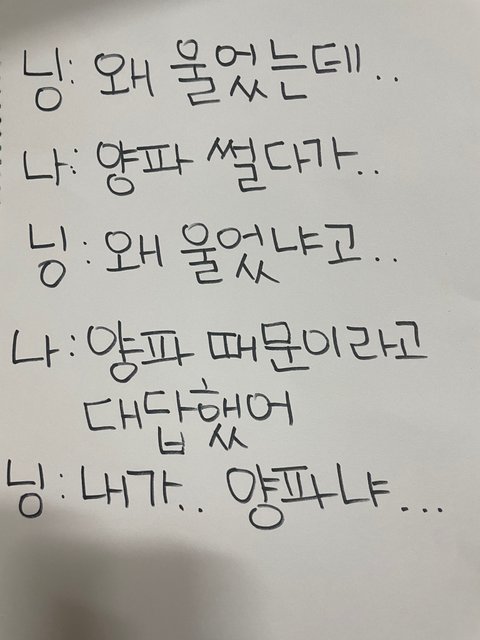 닝: 왜 울었는데..
나: 양파 썰다가..
닝: 왜 울었냐고..
나: 양파 때문이라고
대답했어
닝: 내가.. 양파냐...